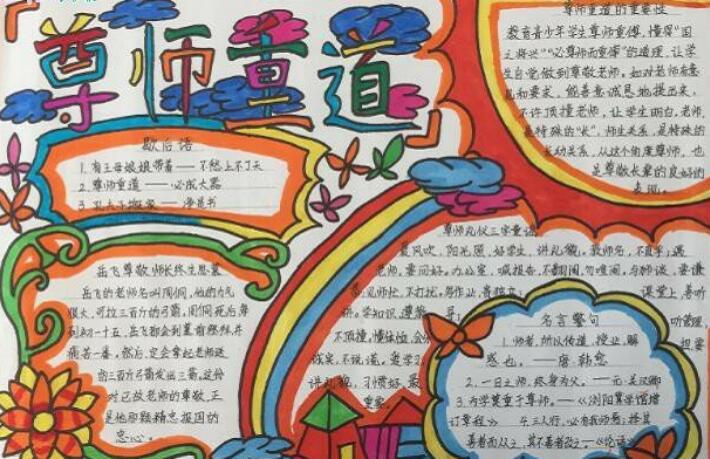 尊师重道
歇后语
1. 有王母娘娘带着——不愁上不了天
2. 尊师重道——必成大器
3. 孔夫子搬家——净是书
岳飞尊敬师长终生思慕
岳飞的老师名叫周侗，他的力气
很大，可拉三百斤的弓箭，周侗死后每
到初一十五，岳飞都会到墓前祭拜，并
痛苦一番。然后，定会拿起老师送
的三百斤弓箭发出三箭，这份
对已故老师的尊敬，正
是他那颗精忠报国的
忠心。
尊师重道的重要性
教育青少年学生尊师重傅，懂得“国
之将兴”“必尊师而重傅”的道理，让学
生自觉做到尊敬老师。如对老师有意
见和要求，能善意诚恳地提出来，
不许顶撞老师，让学生明白，老师
是特殊的“长”，师生关系，是特殊的
长幼关系，从这个角度尊师，也
是尊敬长辈的良好的
表现。
尊师礼仪三字童谣
夏风吹，阳光照，好学生，讲礼貌。教师名，不直呼；遇
老师，要问好。办公室，喊报告，不翻阅，勿喧闹。与师谈，要谦
恭；见师忙，不打扰。写作业，贵独立；
课堂上，善听
讲。学知识，遵
听管理，
不顶撞，懂体恤，会
诚实，不说谎。爱学习
讲礼貌，习惯好，最
重要。
名言警句
1. 师者，所以传道，授业，解
惑也。——唐·韩愈
2. 一日之师，终身为父。——元·关汉卿
3. 为学莫重于尊师。——《浏阳算学馆增
订章程》 4. 三人行，必有我师焉；择其
善者而从之，其不善者改之。——《论语》